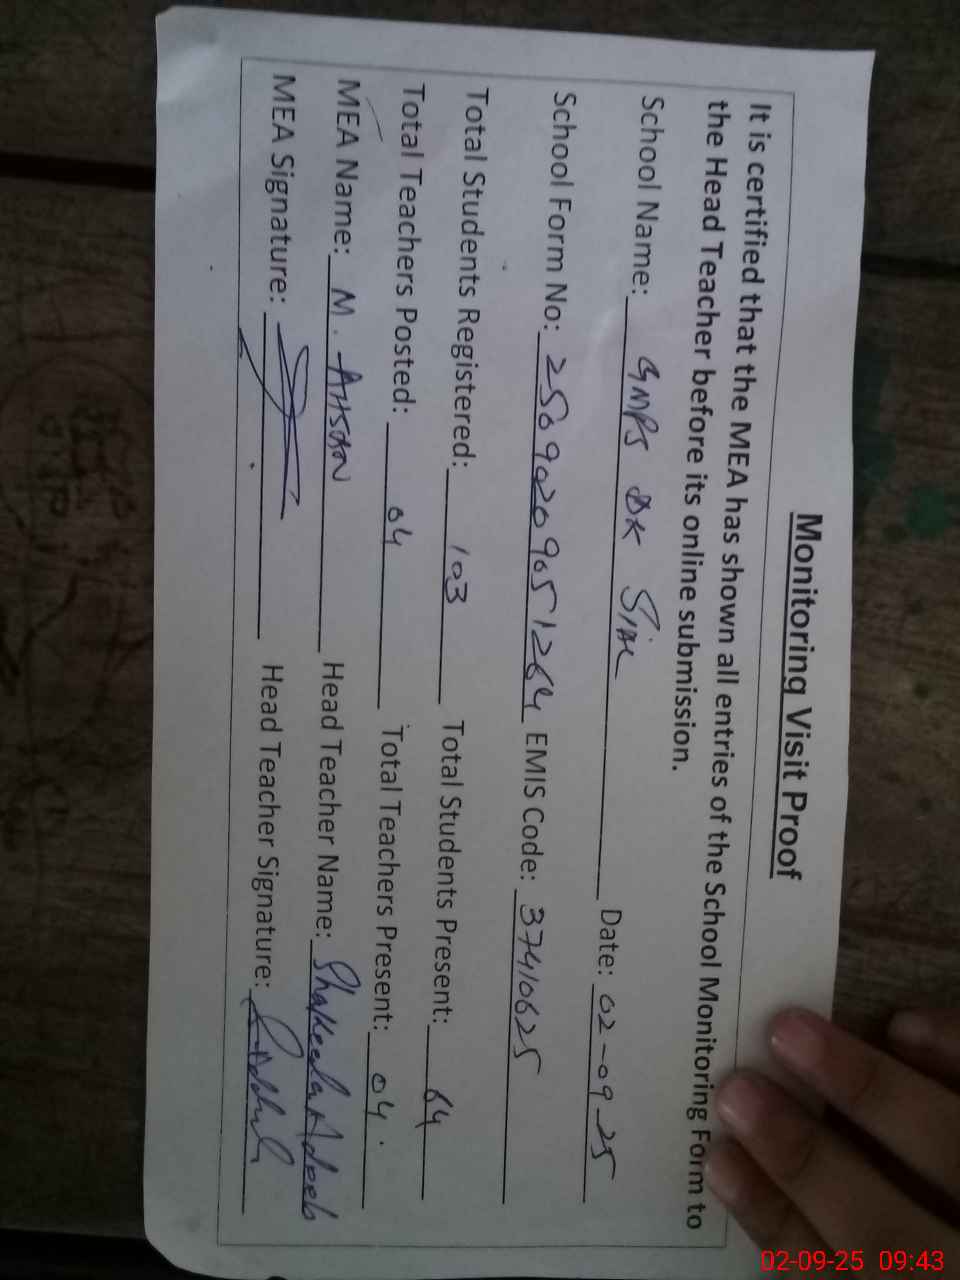 Monitoring Visit Proof
It is certified that the MEA has shown all entries of the School Monitoring Form to
the Head Teacher before its online submission.
School Name: GMPS DK Sial Date: 02-09-25
School Form No: EMIS Code: 37410625
Total Students Registered: 103 Total Students Present: 64
Total Teachers Posted: 04 Total Teachers Present: 04.
MEA Name: M. AHSAN Head Teacher Name: Shakeela Adeeb
MEA Signature: Head Teacher Signature:
02-09-25 09:43